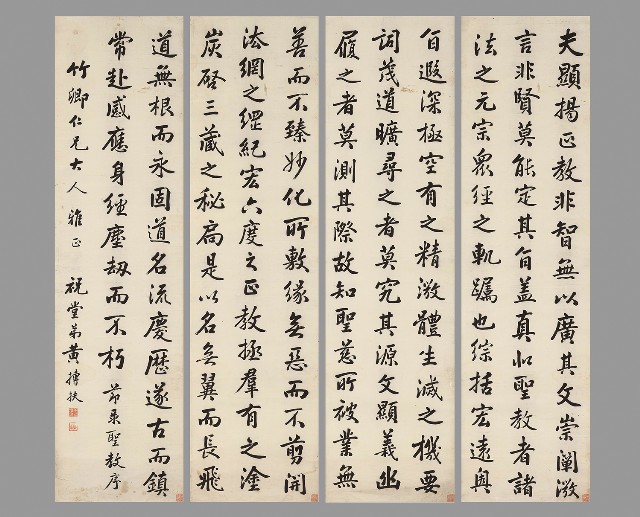 夫顯揚正教非智無以廣其文崇闡微
言非賢莫能定其旨蓋真如聖教者諸
法之元宗眾經之軌躅也綜括宏遠奧
旨遐深極空有之精微體生滅之機要
詞茂道曠尋之者莫究其源文顯義幽
履之者莫測其際故知聖慈所被業無
善而不臻妙化所敷緣無惡而不剪開
法網之綱紀宏六度之正教拯羣有之塗
炭啓三藏之秘扃是以名無翼而長飛
道無根而永固道名流慶歷遂古而鎮
常赴感應身經塵劫而不朽 節录聖教序
竹卿仁兄大人 雅正 祝堂弟黃摶扶